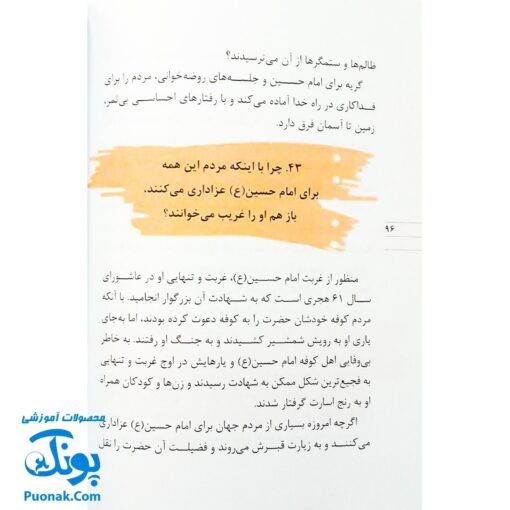 ظالم‌ها و ستمگرها از آن می‌ترسیدند؟
گریه برای امام حسین و جلسه‌های روضه‌خوانی، مردم را برای
فداکاری در راه خدا آماده می‌کند و با رفتارهای احساسی بی‌ثمر،
زمین تا آسمان فرق دارد.
۴۳. چرا با اینکه مردم این همه
برای امام حسین(ع) عزاداری می‌کنند،
باز هم او را غریب می‌خوانند؟
۹۶
منظور از غربت امام حسین(ع)، غربت و تنهایی او در عاشورای
سال ۶۱ هجری است که به شهادت آن بزرگوار انجامید. با آنکه
مردم کوفه خودشان حضرت را به کوفه دعوت کرده بودند، اما به‌جای
یاری او به رویش شمشیر کشیدند و به جنگ او رفتند. به خاطر
بی‌وفایی اهل کوفه امام حسین(ع) و یارهایش در اوج غربت و تنهایی
به فجیع‌ترین شکل ممکن به شهادت رسیدند و زن‌ها و کودکان همراه
او به رنج اسارت گرفتار شدند.
اگرچه امروزه بسیاری از مردم جهان برای امام حسین(ع) عزاداری
می‌کنند و به زیارت قبرش می‌روند و فضیلت آن حضرت را نقل
محصولات آموزشی
پونک
Puonak.Com